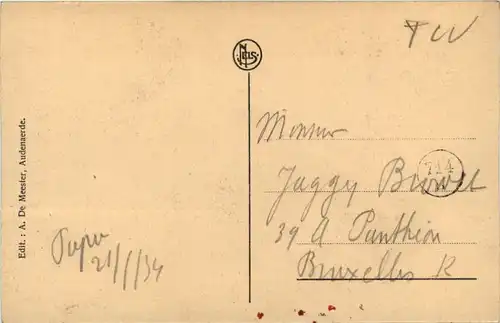 TCV
NELS
Monsieur
714
Jaggy
39 A Panthéon
Bruxelles
Edit. : A. De Meester, Audenaerde.
21/1/34